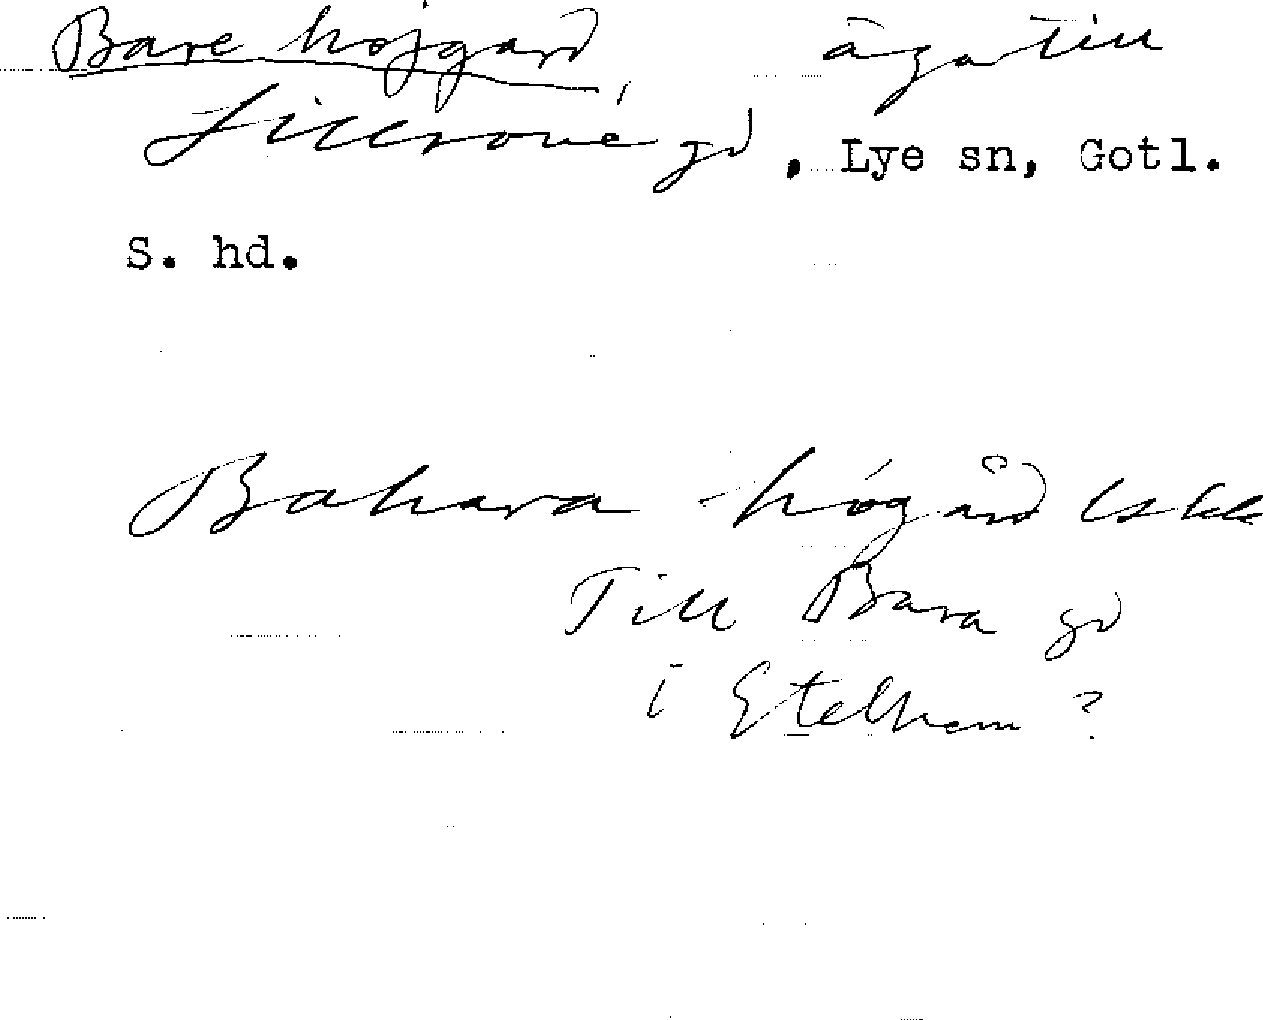 Bare hojgard äga till
Lillrone gd, Lye sn, Gotl.
S. hd.
Bahara - högård
Till Bara gd
i Etelhem ?